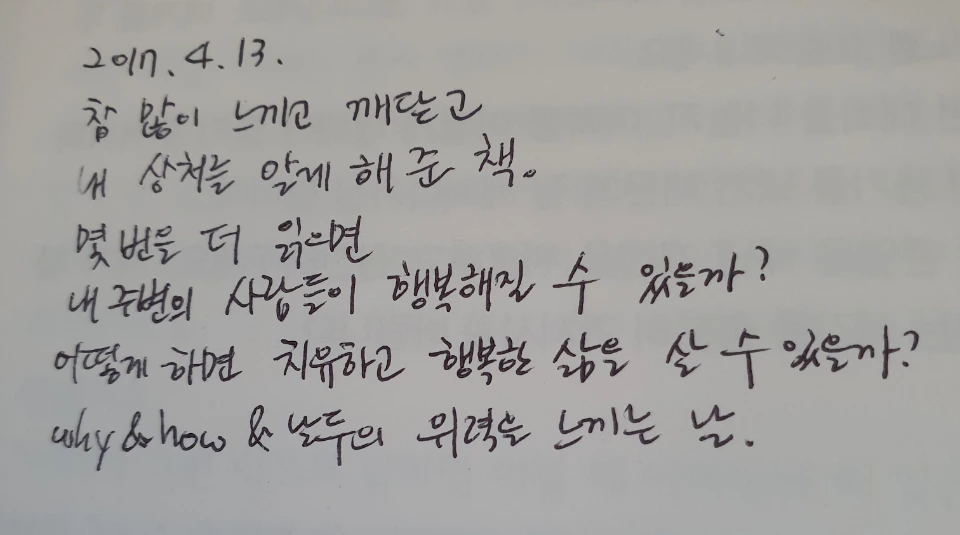 2017. 4. 13.
참 많이 느끼고 깨닫고
내 상처를 알게 해 준 책.
몇 번을 더 읽으면
내 주변의 사람들이 행복해질 수 있을까?
어떻게 하면 치유하고 행복한 삶을 살 수 있을까?
why & how & 위력을 느끼는 날.